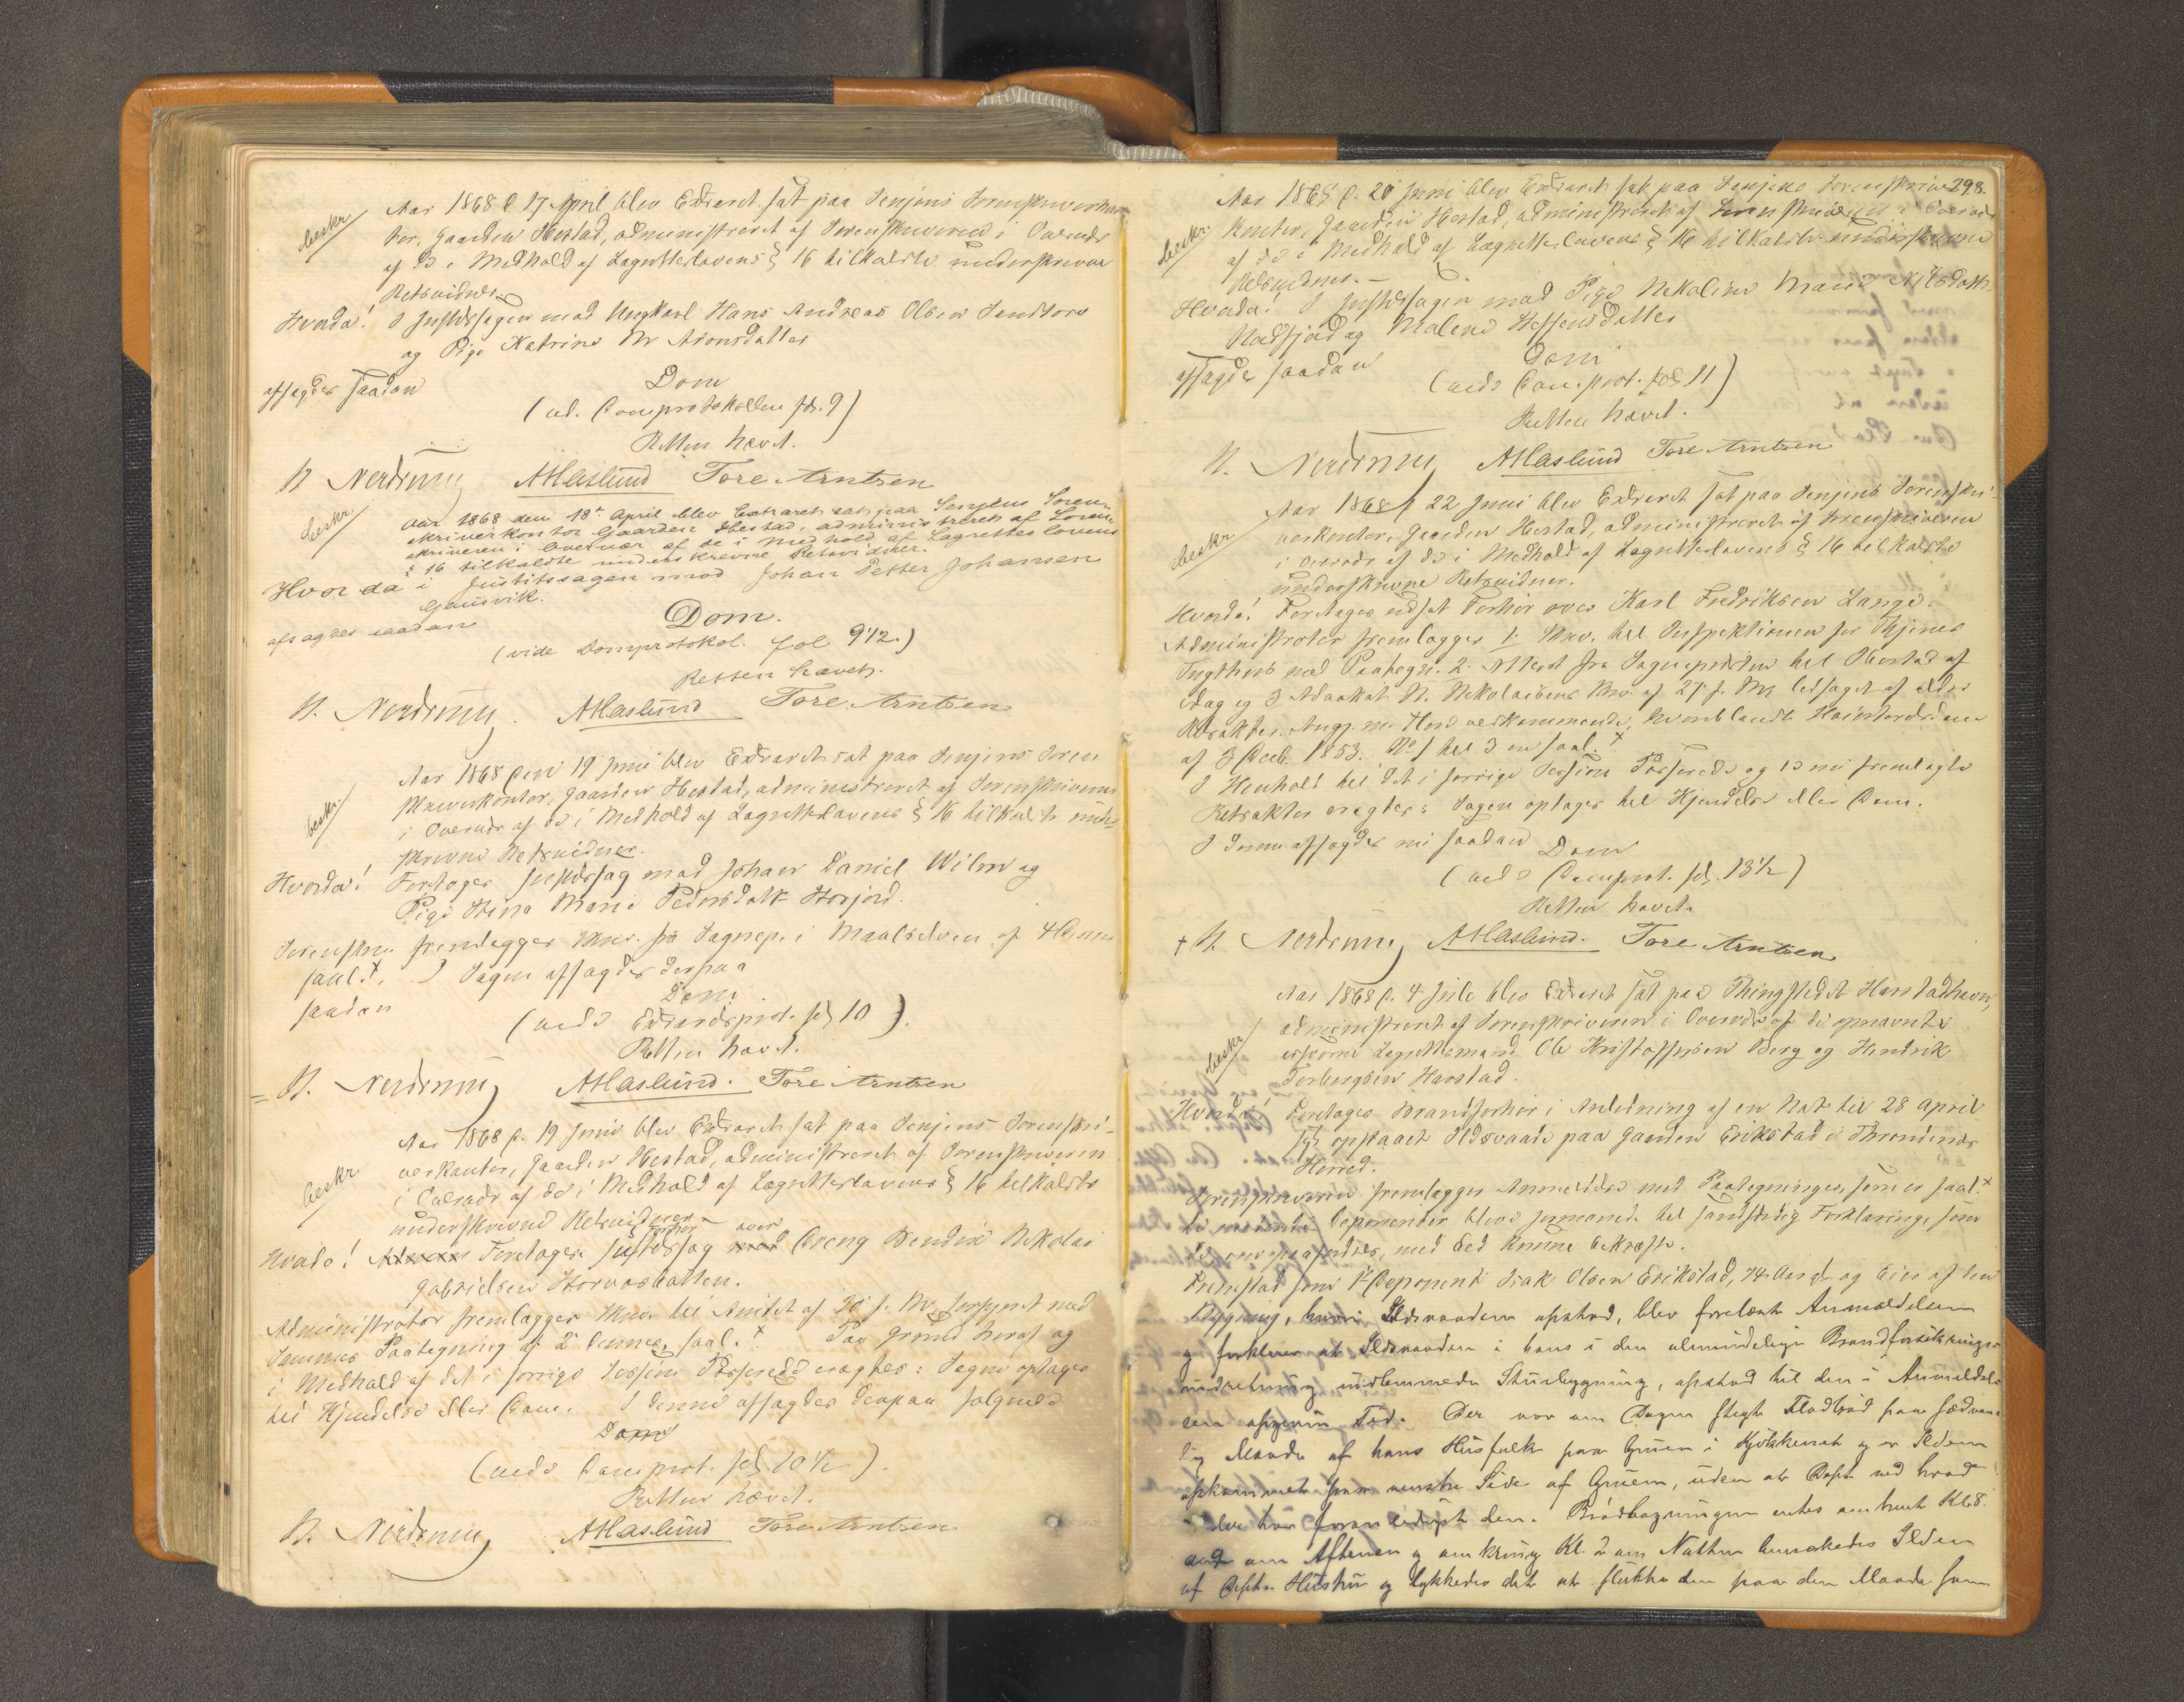 Aar 1868 d 17 April blev Extraret sat paa Senjens Sorenskriverkon
beskr
tor, Gaarden Ibestad, administreret af Sorenskriveren i Overvær
af de i Medhold af Lagrettelovens § 16 tilkaldte underskrevne
Retsvidner.
Hvorda! I Justitssagen mod Ungkarl Hans Andreas Olsen
og Pige Katrine M Aronsdatter
afsagdes saadan Dom
(vid. Domprotokollen fol. 9)
Retten hævet.
N Nerdrum AHaslund Tore Arntsen
beskr.
Aar 1868 den 18de April blev Extraret sat paa Senjens Soren-
skriverkontor Gaarden Ibestad, administreret af Soren-
skriveren i Overvær af de i Medhold af Lagrettes lovens
§ 16 tilkaldte underskrevne Retsvidner.
Hvor da i Justitssagen mod Johan Petter Johansen
Gausvik.
afsagdes saadan Dom.
(vide Domprotokol. fol 9 1/2.)
Retten hævet.
N. Nerdrum. AHaslund Tore Arntsen
Aar 1868 den 19 Juni blev Extraret sat paa Senjens Soren
beskr.
skriverkontor, Gaarden Ibestad, administreret af Sorenskriveren
i Overvær af de i Medhold af Lagrettelovens § 16 tilkaldte under
skrevne Retsvidner.
Hvorda! Foretages Justitssag mod Johan Daniel Wilm og
Pige Stina Marie Pedersdatt Storjord.
Sorenskr. fremlægger Skr. fra Sognep. i Maalselven af 4
saal. x. I Sagen afsagdes derpaa
saadan Dom
(vide Extraretsprot. fol 10).
Retten hævet.
= N. Nerdrum AHaslund. Tore Arntsen
Aar 1868 d. 19 Juni blev Extraret sat paa Senjens Sorenskri-
beskr
verkontor, Gaarden Ibestad, administreret af Sorenskriveren
i Overvær af de i Medhold af Lagrettelovens § 16 tilkaldte
underskrevne Retsvidner
Forhør over
Hvorda! Foretages Justitssag mod Dreng Bendix Nikolai
Gabrielsen Storvasbotten.
Administrator fremlægger Skr. til Amtet af 20 f. M. forsynet med
Sammes Paategning af 2 dennes, saal. x Paa Grund heraf og
i Medhold af det i forrige Session Passerede eragtes: Sagen optages
til Kjendelse eller Dom. I denne afsagdes derpaa følgende
Dom
(vide Domprot. fol 10 1/2).
Retten hævet.
N. Nerdrum, AHaslund Tore Arntsen
298.
Aar 1868 d. 20 Juni blev Extraret sat paa Senjens Sorenskriver
beskr
kontor, Gaarden Ibestad, administreret af Sorenskriveren i Overvær
af de i Medhold af Lagrettelovens § 16 tilkaldte underskrevne
Retsvidner.-
Hvorda! I Justitssagen mod Pige Nekoline Marie
og Malene Steffensdatter
afsagdes saadan Dom
(vide Domprot. fol. 11)
Retten hævet.
N. Nerdrum AHaslund Tore Arntsen
Aar 1868 d 22 Juni blev Extraret sat paa Senjens Sorenskri-
beskr
verkontor, Gaarden Ibestad, administreret af Sorenskriveren
i Overvær af de i Medhold af Lagrettelovens § 16 tilkaldte
underskrevne Retsvidner.
Hvorda! Foretages udsat Forhør over Karl Fredriksen Lange.
Administrator fremlægger 1. Skr. til Inspektionen for Thjems
Tugthus med Paategn. 2. Attest fra Sognepresten til Ibestad af
idag og 3 Advokat N. Nikolaisens Skr. af 27 f. M. ledsaget af ældre
Retsakter. Angj. vedkommende, hvoriblandt
af 3 Decb. 1853. No 1 til 3 er saal. x
I Henhold til det i forrige Session Passerede og de nu fremlagte
Retsakter eragtes: Sagen optages til Kjendelse eller Dom.
I denne afsagdes nu saadan Dom
(vide Domprot. fol. 13 1/2)
Retten hævet.
+ N. Nerdrum, AHaslund. Tore Arntsen
Aar 1868 d. 4 Juli blev Extraret sat paa Thingstedet Harstadhavn,
beskr
administreret af Sorenskriveren i Overvær af de opnævnte
edsvorne Lagrettemænd Ole Kristoffersen Berg og Hendrik
Torbergsen Harstad.
Hvorda! Foretages Brandforhør i Anledning af en Nat til 28 April
sidst opstaaet Ildsvaade paa Gaarden Erikstad i Throndenes
Herred.
Sorenskriveren fremlægger Anmeldelse med Paategninger, som er saal. x
De mødende Deponenter bleve formanede til sandfærdig Forklaring, som
de om paafordres, med Eed kunne bekræfte.
Fremstod som 1ste Deponent Isak Olsen Erikstad, 74 Aar gl. og Eier af den
Bygning, hvori Ildsvaaden opstod, blev forelæst Anmeldelsen
og forklarer at Ildsvaaden i hans i den almindelige Brandforsikrings-
indretning indlemmede Stuebygning, opstod til den i Anmeldel-
sen opgivne Tid. Der var om Dagen stegt Fladbrød paa sædvan-
lig Maade af hans Husfolk paa Gruen i Kjøkkenet og er Ilden
opkommet paa venstre Side af Gruen, uden at Depten ved hvad
der har foranlediget den. Brødbagningen endtes omtrent Kl. 8
om Aftenen og omkring Kl. 2 om Natten bemærkedes Ilden
af Deptens Hustru og lykkedes det at slukke den paa den Maade som